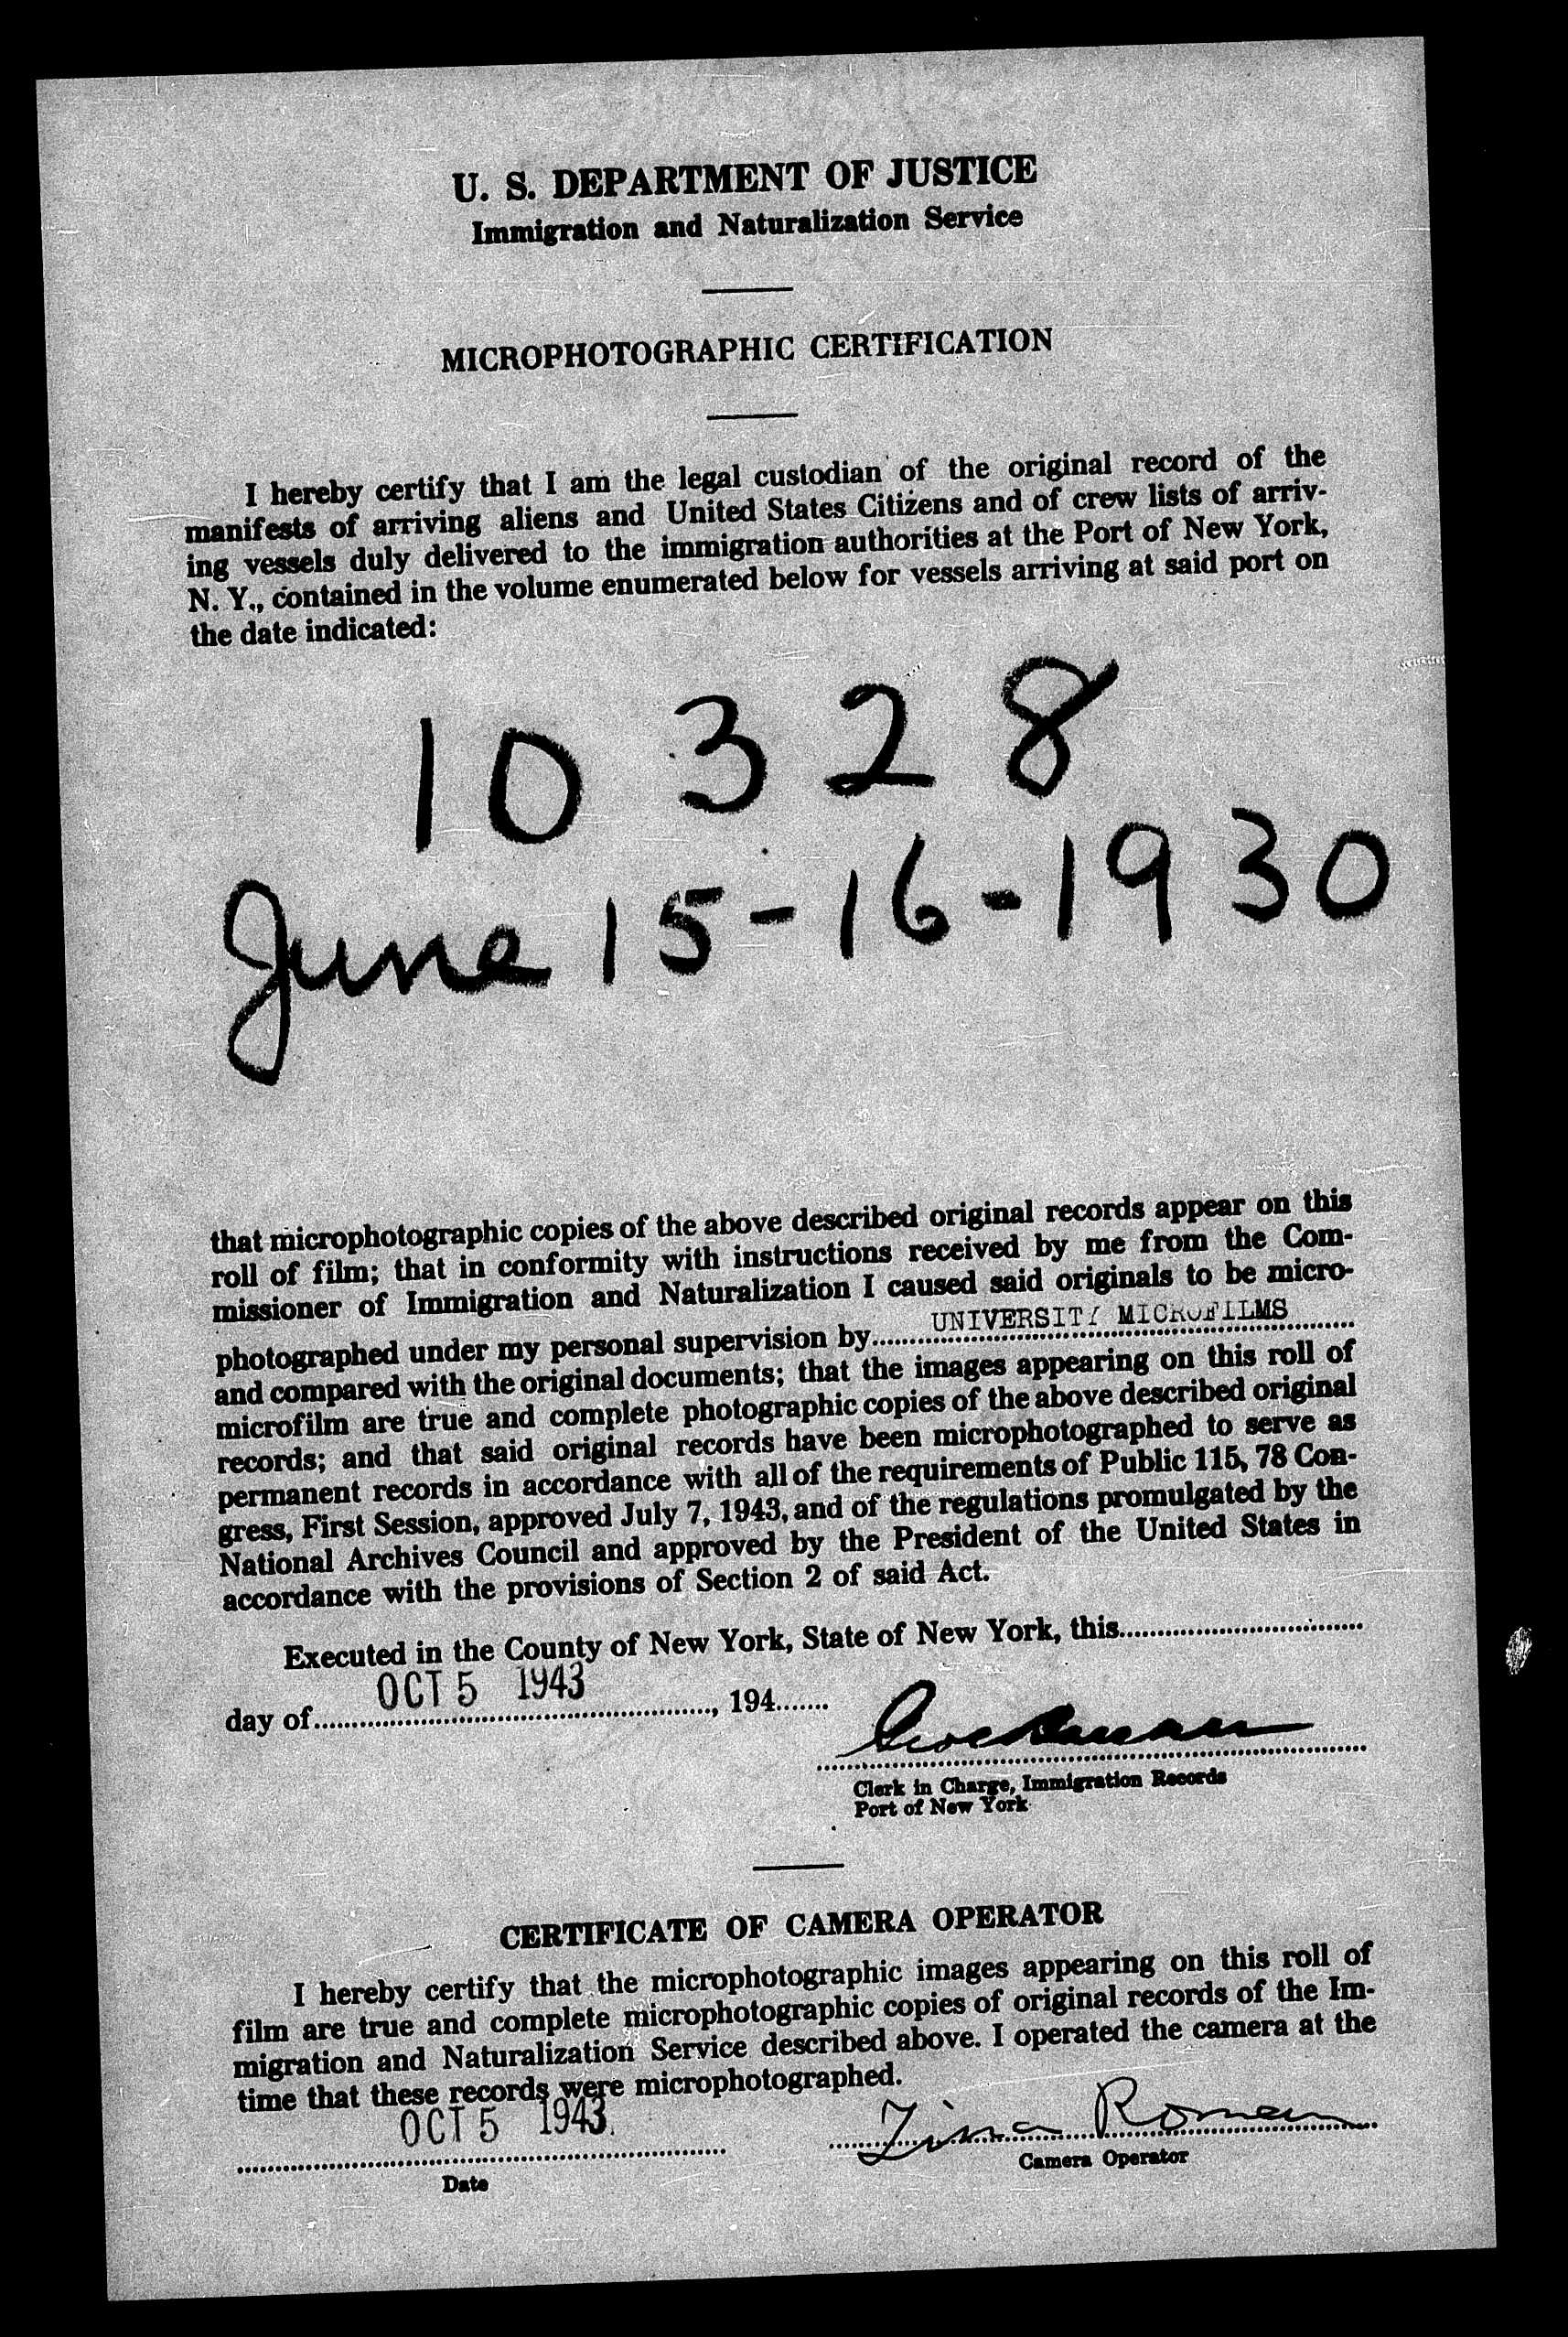 U. S. DEPARTMENT OF JUSTICE
Immigration and Naturalization Service
MICROPHOTOGRAPHIC CERTIFICATION
I hereby certify that I am the legal custodian of the original record of the
manifests of arriving aliens and United States Citizens and of crew lists of arriv-
ing vessels duly delivered to the immigration authorities at the Port of New York,
N. Y., contained in the volume enumerated below for vessels arriving at said port on
the date indicated:
10328
June 15-16-1930
that microphotographic copies of the above described original records appear on this
roll of film; that in conformity with instructions received by me from the Com-
missioner of Immigration and Naturalization I caused said originals to be micro-
photographed under my personal supervision by UNIVERSITY MICROFILMS
and compared with the original documents; that the images appearing on this roll of
microfilm are true and complete photographic copies of the above described original
records; and that said original records have been microphotographed to serve as
permanent records in accordance with all of the requirements of Public 115, 78 Con-
gress, First Session, approved July 7, 1943, and of the regulations promulgated by the
National Archives Council and approved by the President of the United States in
accordance with the provisions of Section 2 of said Act.
Executed in the County of New York, State of New York, this
day of OCT 5 1943, 194
Clerk in Charge, Immigration Records
Port of New York
CERTIFICATE OF CAMERA OPERATOR
I hereby certify that the microphotographic images appearing on this roll of
film are true and complete microphotographic copies of original records of the Im-
migration and Naturalization Service described above. I operated the camera at the
time that these records were microphotographed.
OCT 5 1943.
Date
Camera Operator